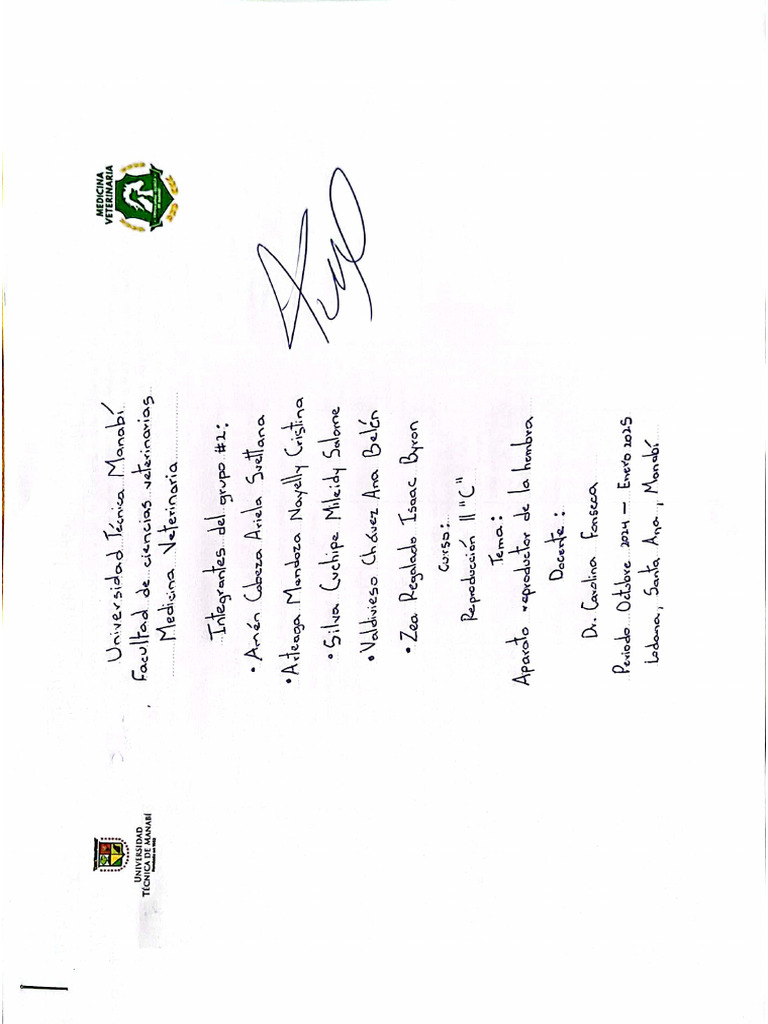 UNIVERSIDAD
TÉCNICA DE MANABÍ
MEDICINA
VETERINARIA
Universidad Técnica Manabí
Facultad de ciencias veterinarias
Medicina Veterinaria
Integrantes del grupo #2:
• Amén Cabeza Ariela Svettana
• Arteaga Mendoza Nayelly Cristina
• Silva Cuchipe Mileidy Salome
• Valdivieso Chávez Ana Belén
• Zea Regalado Isaac Byron
Curso:
Reproducción II "C"
Tema:
Aparato reproductor de la hembra
Docente:
Dr. Carolina Fonseca
Periodo Octubre 2024 – Enero 2025
Lodana, Santa Ana, Manabí